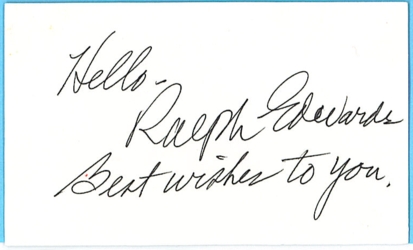 Hello-
Ralph Edwards
Best wishes to you.